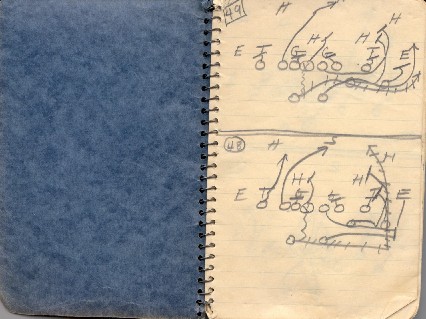 49
H
H
H H
E T G G T E
48
H S
H
H H
E T E E T E